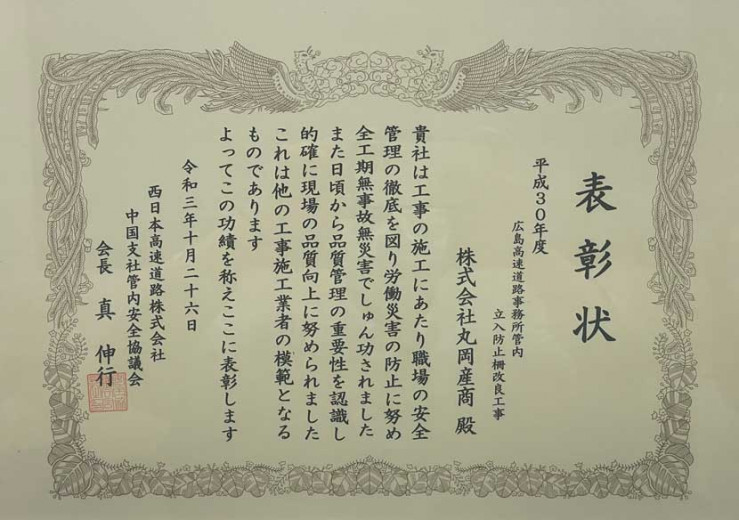 表彰状
平成30年度
広島高速道路事務所管内
立入防止柵改良工事
株式会社丸岡産商 殿
貴社は工事の施工にあたり職場の安全
管理の徹底を図り労働災害の防止に努め
全工期無事故無災害でしゅん功されました
また日頃から品質管理の重要性を認識し
的確に現場の品質向上に努められました
これは他の工事施工業者の模範となる
ものであります
よってこの功績を称えここに表彰します
令和三年十月二十六日
西日本高速道路株式会社
中国支社管内安全協議会
会長 真 伸行